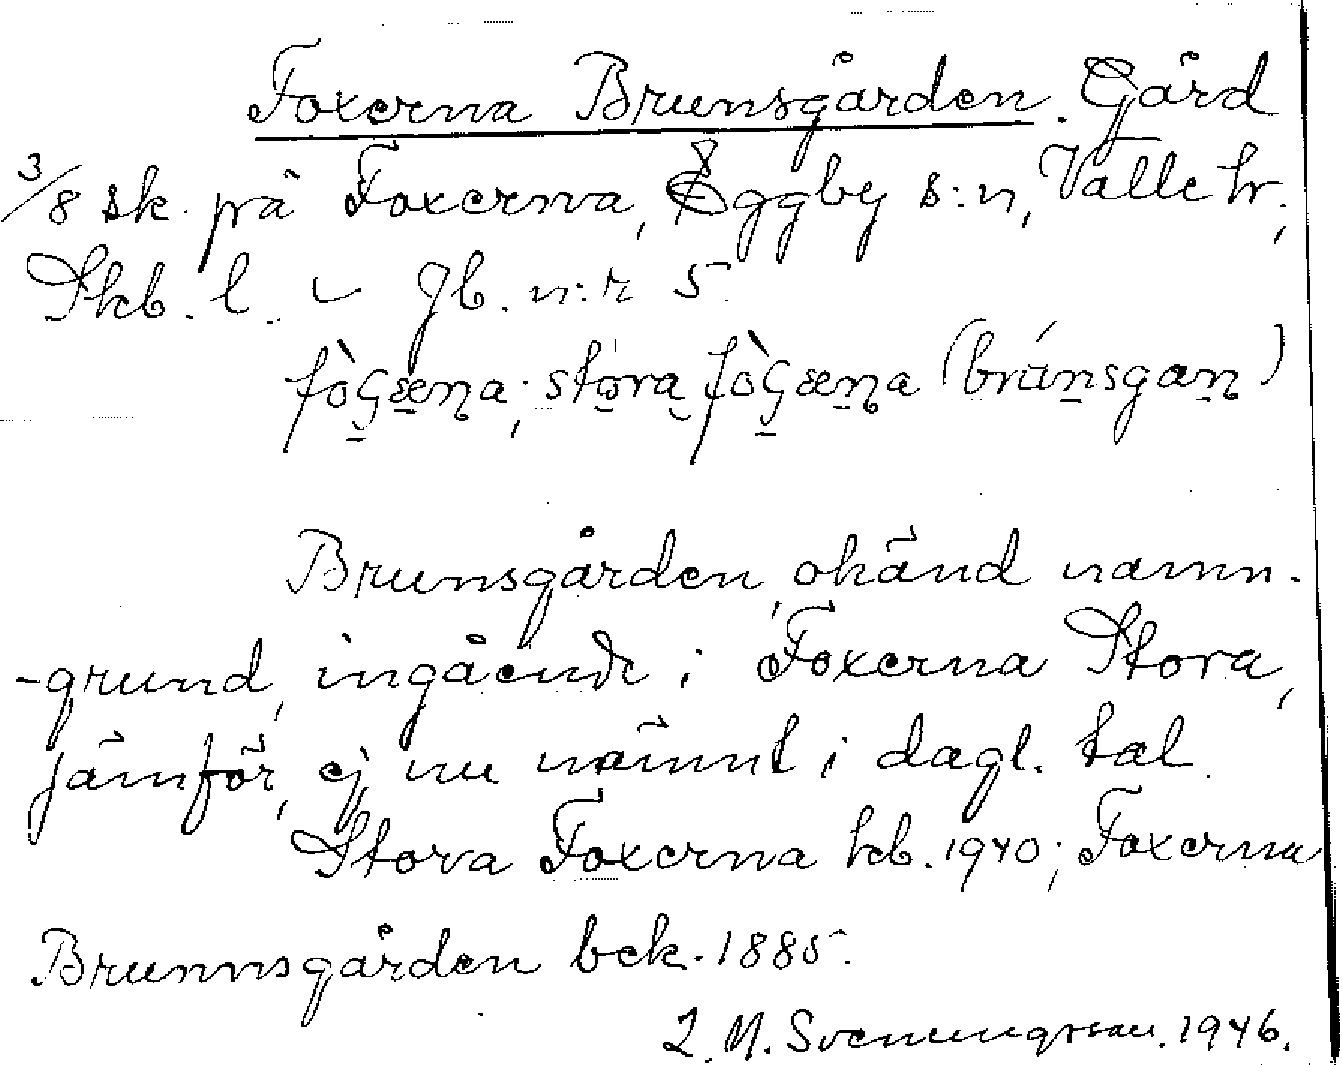 Foxerna Brunsgården. Gård
3/8 sk. på Foxerna, Eggby s:n, Valle hr.,
Skb. l. Jb. n:r 5.
(brúnsgaṉ)
Brunsgården, okänd namn-
-grund, ingående i Foxerna Stora,
jämför, ej nu nämnt i dagl. tal.
Stora Foxerna hcb. 1940; Foxerna
Brunnsgården bek. 1885.
L. M. Svenungsson. 1946.